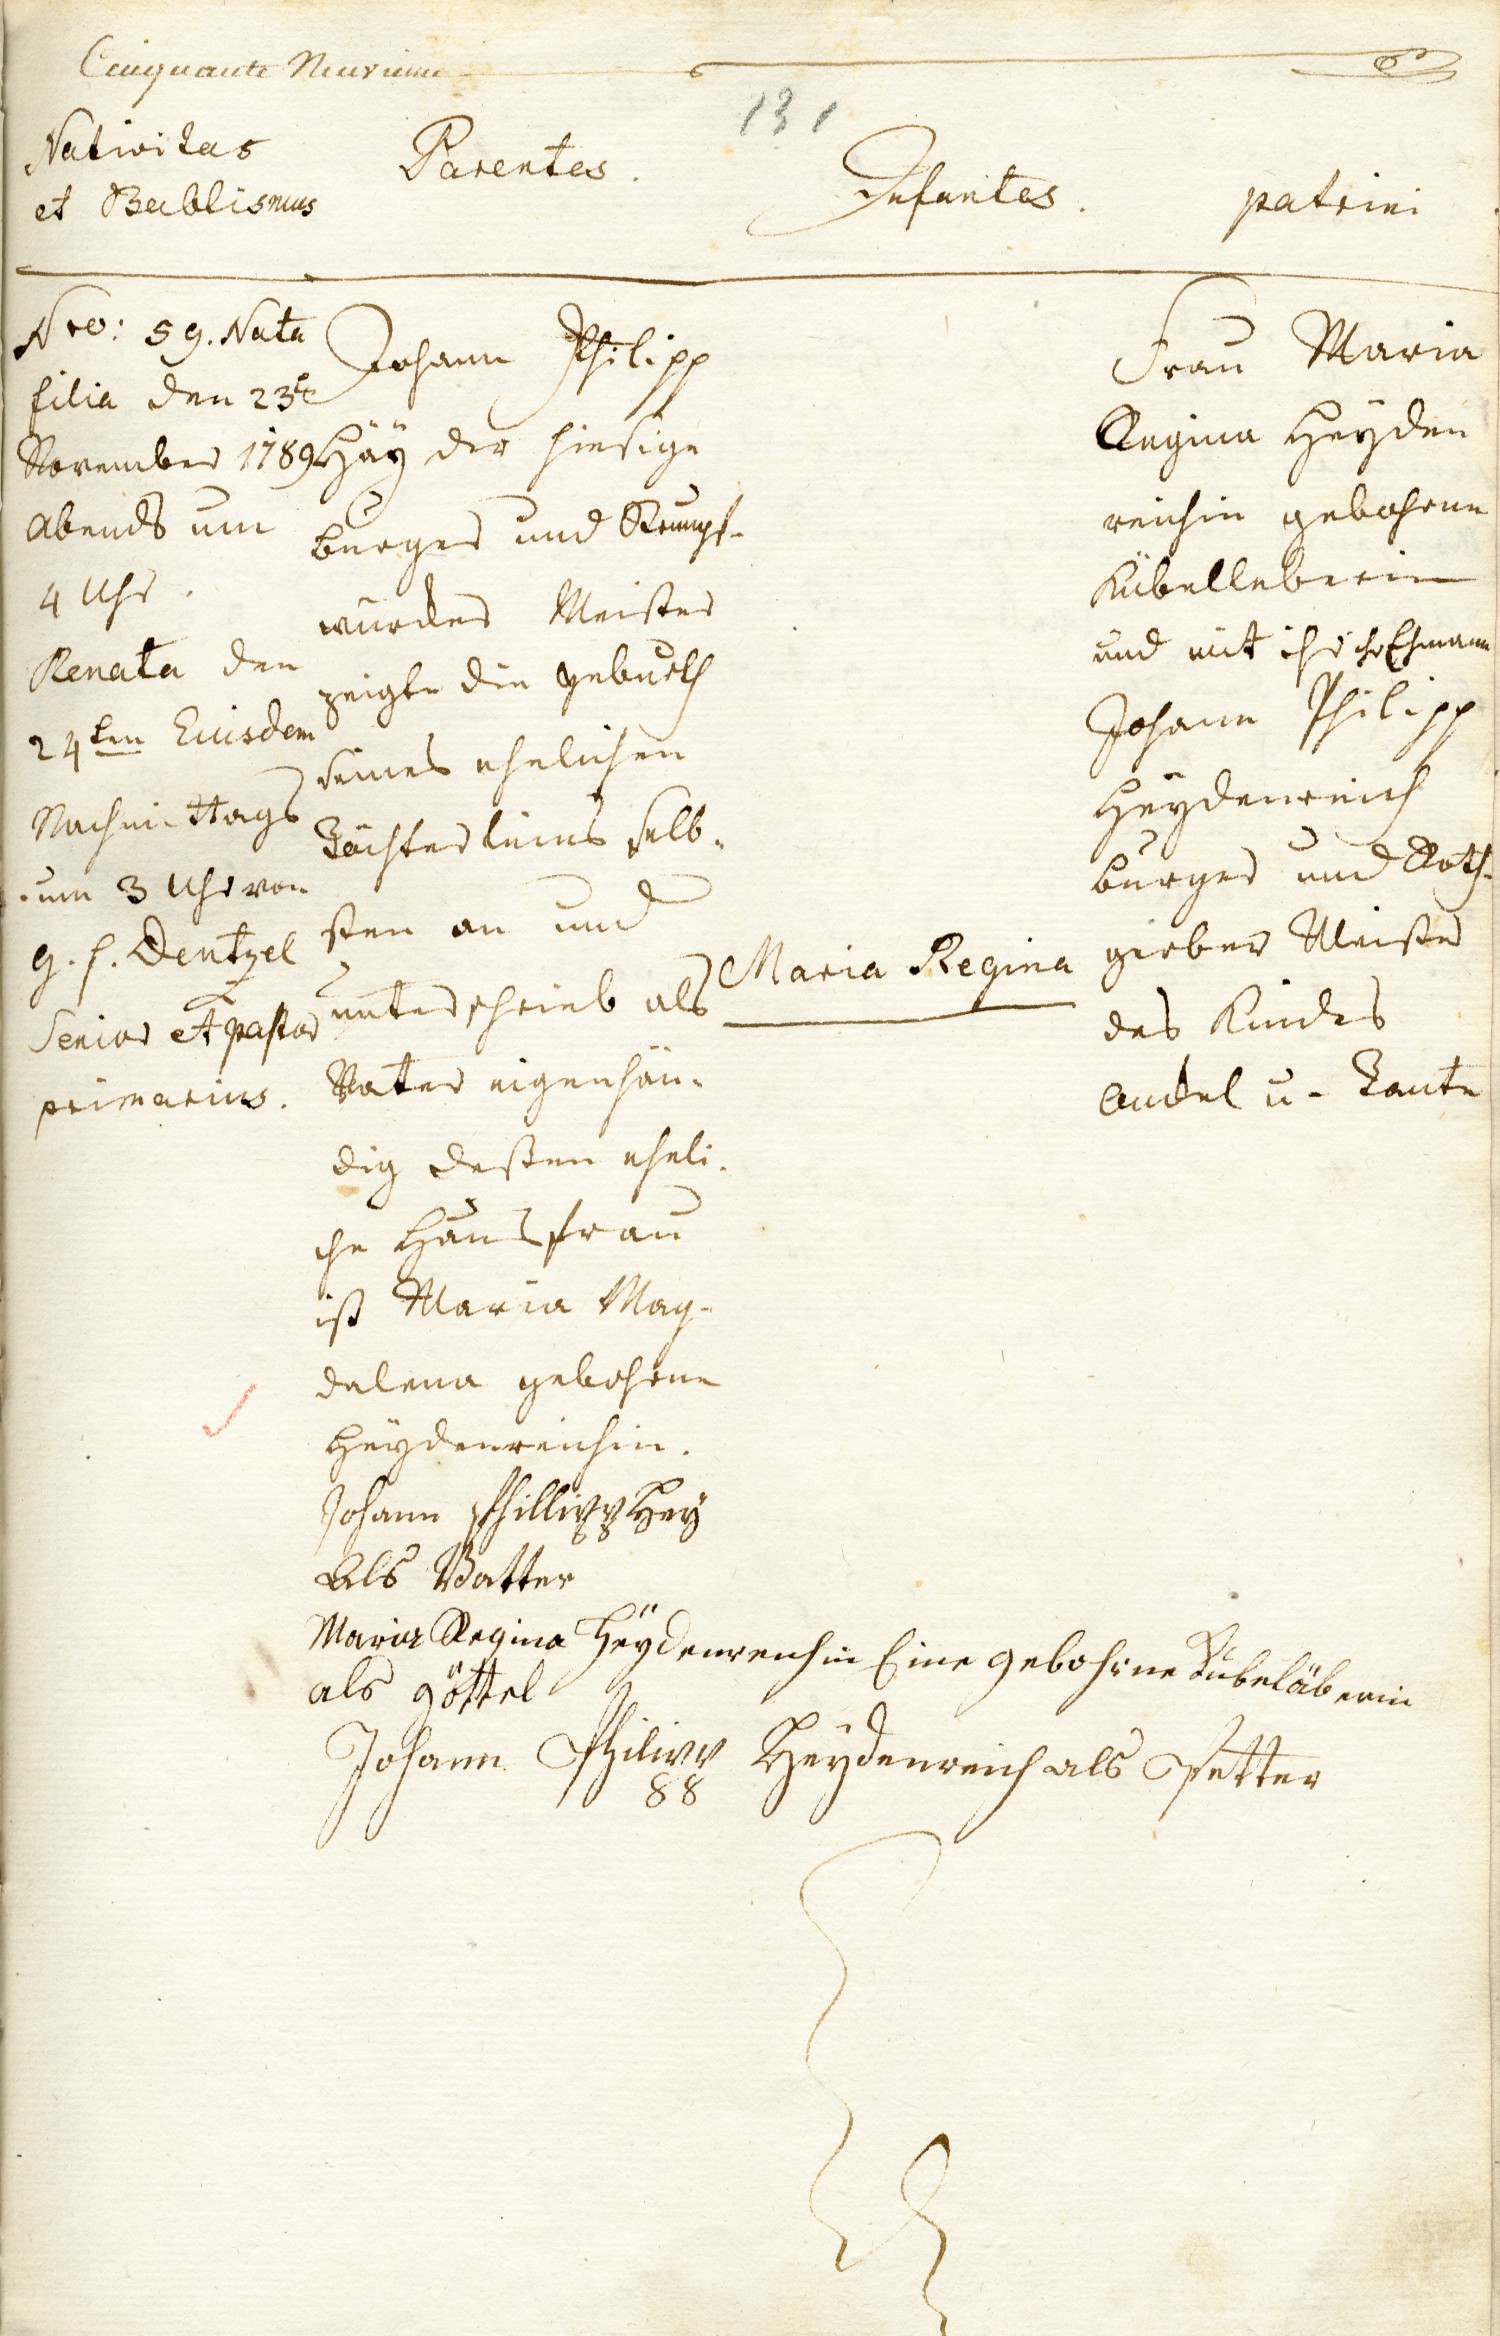 Cinquante Neuvieme
131
Nativitas
et Babtismus
Parentes.
Infantes.
patrini
Nro: 59. Nata
filia den 23t
November 1789
abends um
4 Uhr.
Renata den
24ten Eiusdem
Nachmittags
um 3 Uhr von
G. f. Dentzel
Senior et pastor
primarius.
Johann Philipp
Häÿ der hiesige
burger und Strumpf-
würcker Meister
zeigte die geburth
seines ehelichen
Töchterleins selb-
sten an und
unterschrieb als
Vater eigenhän-
dig deßen eheli-
che Haußfrau
ist Maria Mag-
dalena gebohrne
Heÿdenreichin.
Johann Phillipp Heÿ
Als Vatter
Maria Regina
Frau Maria
Regina Heÿden
reichin gebohrne
Kübelleberin
und mit ihr ihr Ehmann
Johann Philipp
Heÿdenreich
burger und Roth-
gießer Meister
des Kindes
Onckel u- Tante
Maria Regina Heÿdenreichin Eine gebohrne Kübeläberin
als göttel
Johann Philipp Heÿdenreich als Petter